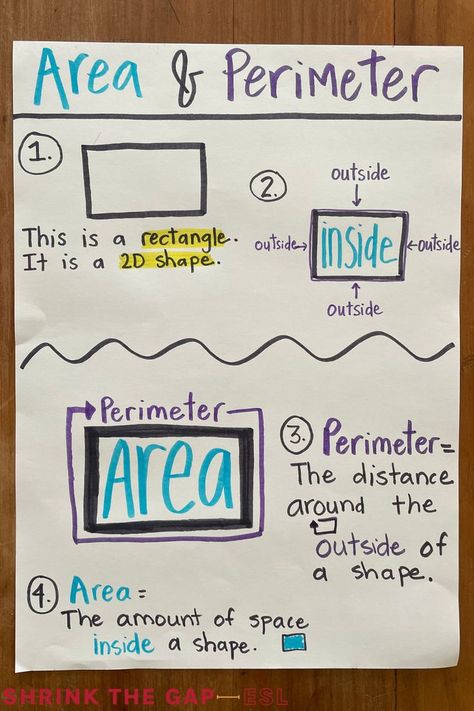 Area & Perimeter
1.
This is a rectangle.
It is a 2D shape.
2.
outside
outside
inside
outside
outside
Perimeter
Area
3. Perimeter=
The distance
around the
outside of
a shape.
4. Area=
The amount of space
inside a shape.
SHRINK THE GAP—ESL